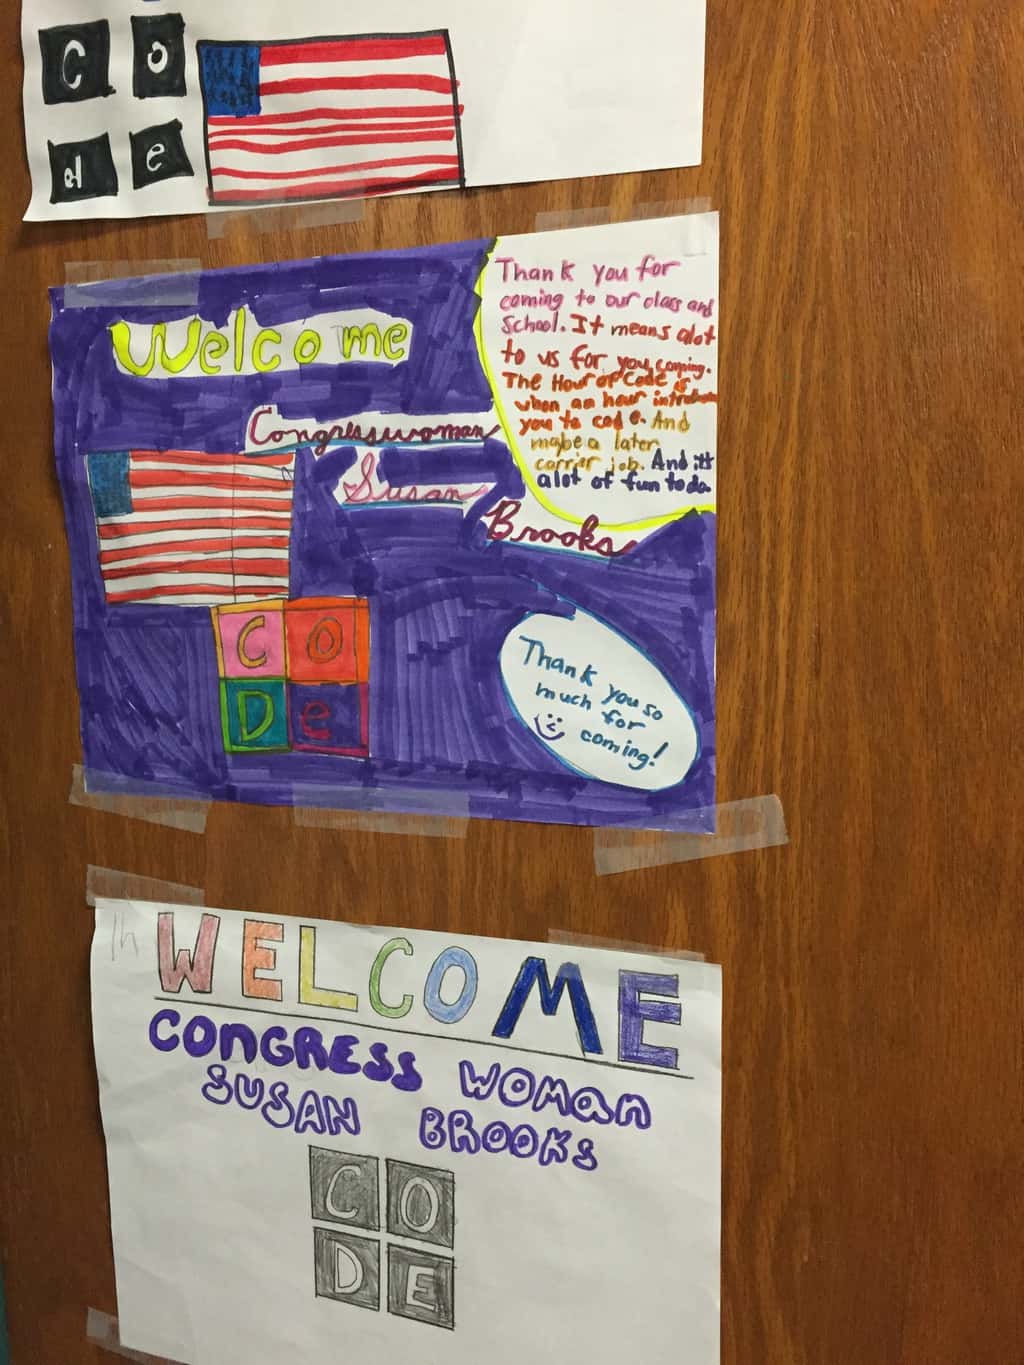 Co
de
Welcome
Congresswoman
Susan
Brooks
Thank you for
coming to our class and
School. It means alot
to us for you coming.
The Hour of Code is
when an hour
you to code. And
maybe a later
carrier job. And it's
alot of fun
CO
De
Thank you so
much for
coming!
WELCOME
CONGRESS WOMAN
SUSAN BROOKS
CO
DE